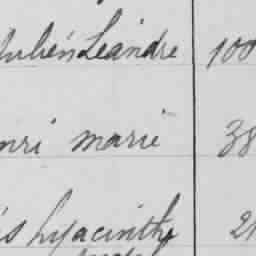 Julien Leandre 100
nri marie 38
s hyacinthe 21